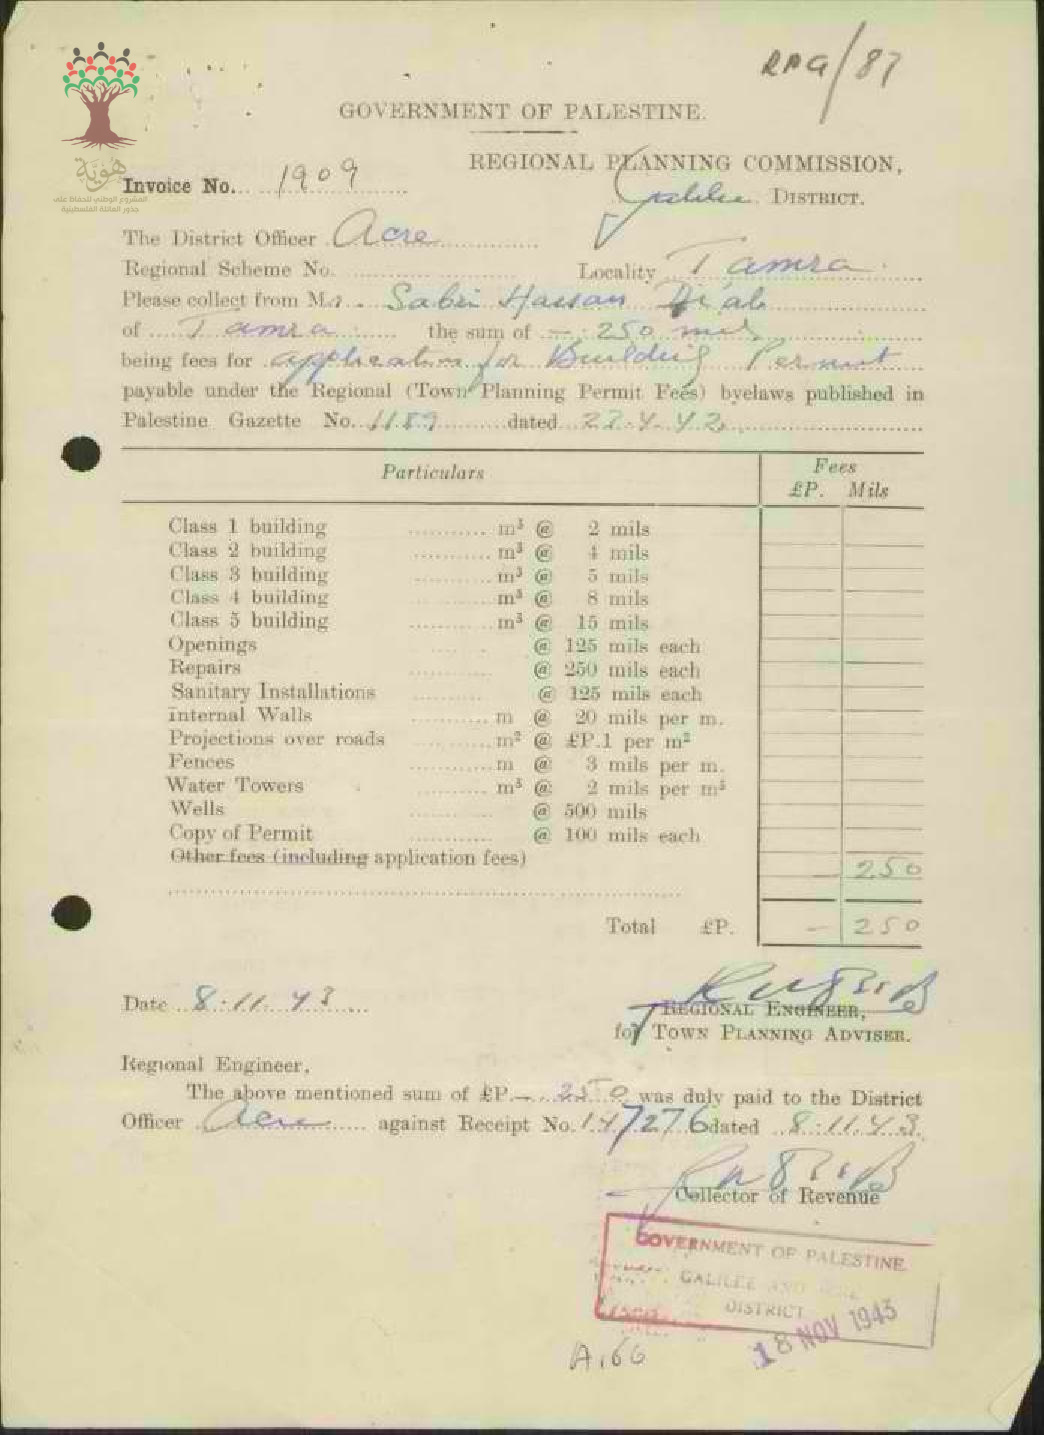 RPG/87
GOVERNMENT OF PALESTINE.
REGIONAL PLANNING COMMISSION,
هُوِيَّة
المشروع الوطني للحفاظ على
جذور العائلة الفلسطينية
Invoice No. 1909
Galilee DISTRICT.
The District Officer Acre
Regional Scheme No. Locality Tamra
Please collect from Mr. Sabri Hassan Di'ab
of Tamra the sum of -: 250 mils
being fees for application for Building Permit
payable under the Regional (Town Planning Permit Fees) byelaws published in
Palestine Gazette No. 1189 dated 22.4.42
Particulars Fees
£P. Mils
Class 1 building m³ @ 2 mils
Class 2 building m³ @ 4 mils
Class 3 building m³ @ 5 mils
Class 4 building m³ @ 8 mils
Class 5 building m³ @ 15 mils
Openings @ 125 mils each
Repairs @ 250 mils each
Sanitary Installations @ 125 mils each
Internal Walls m @ 20 mils per m.
Projections over roads m² @ £P.1 per m²
Fences m @ 3 mils per m.
Water Towers m³ @ 2 mils per m³
Wells @ 500 mils
Copy of Permit @ 100 mils each
Other fees (including application fees) 250
Total £P. - 250
Date 8.11.43
REGIONAL ENGINEER,
for TOWN PLANNING ADVISER.
Regional Engineer,
The above mentioned sum of £P. - 250 was duly paid to the District
Officer Acre against Receipt No. 147276 dated 8.11.43
Collector of Revenue
GOVERNMENT OF PALESTINE.
GALILEE AND ACRE
DISTRICT
18 NOV 1943
A.66